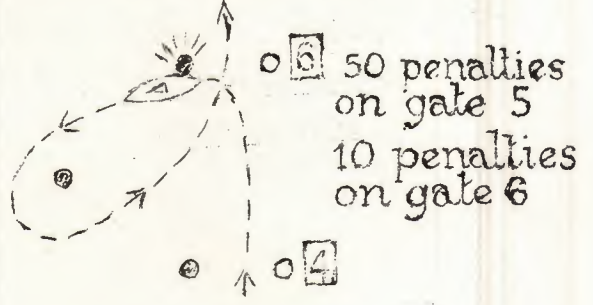 6 50 penalties
on gate 5
10 penalties
on gate 6
4